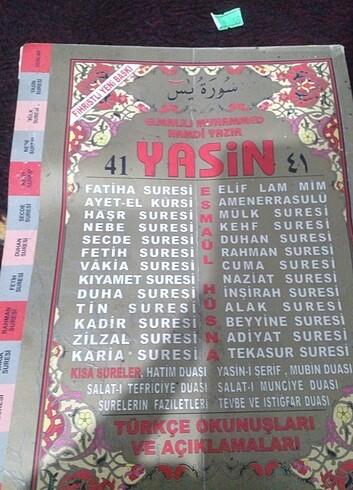 FİHRİSTLİ YENİ BASKI
سورة يس
ELMALILI MUHAMMED
HAMDİ YAZIR
41 YASİN ٤١
FATİHA SURESİ ELİF LAM MİM
AYET-EL KÜRSİ AMENERRASULÜ
HAŞR SURESİ MULK SURESİ
NEBE SURESİ KEHF SURESİ
SECDE SURESİ DUHAN SURESİ
FETİH SURESİ RAHMAN SURESİ
VÂKİA SURESİ CUMA SURESİ
KIYAMET SURESİ NAZİAT SURESİ
DUHA SURESİ İNŞİRAH SURESİ
TİN SURESİ ALAK SURESİ
KADİR SURESİ BEYYİNE SURESİ
ZİLZAL SURESİ ADİYAT SURESİ
KARİA SURESİ TEKASUR SURESİ
ESMAÜL HÜSNA
KISA SURELER, HATİM DUASI YASİN-İ ŞERİF, MUBİN DUASI
SALAT-I TEFRİCİYE DUASI SALAT-I MUNCİYE DUASI
SURELERİN FAZİLETLERİ TEVBE VE İSTİGFAR DUASI
TÜRKÇE OKUNUŞLARI
VE AÇIKLAMALARI
YASİN
SURESİ
SECDE
SURESİ
DUHAN
SURESİ
FETİH
SURESİ
RAHMAN
SURESİ